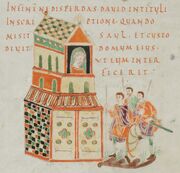 IN FINE NE DISPERDAS DAVID IN TITULI
INSCRIPTIONE QUANDO
MISIT SAUL ET CUSTO
DIVIT DOMUM EIUS
UT EUM INTER
FICERET